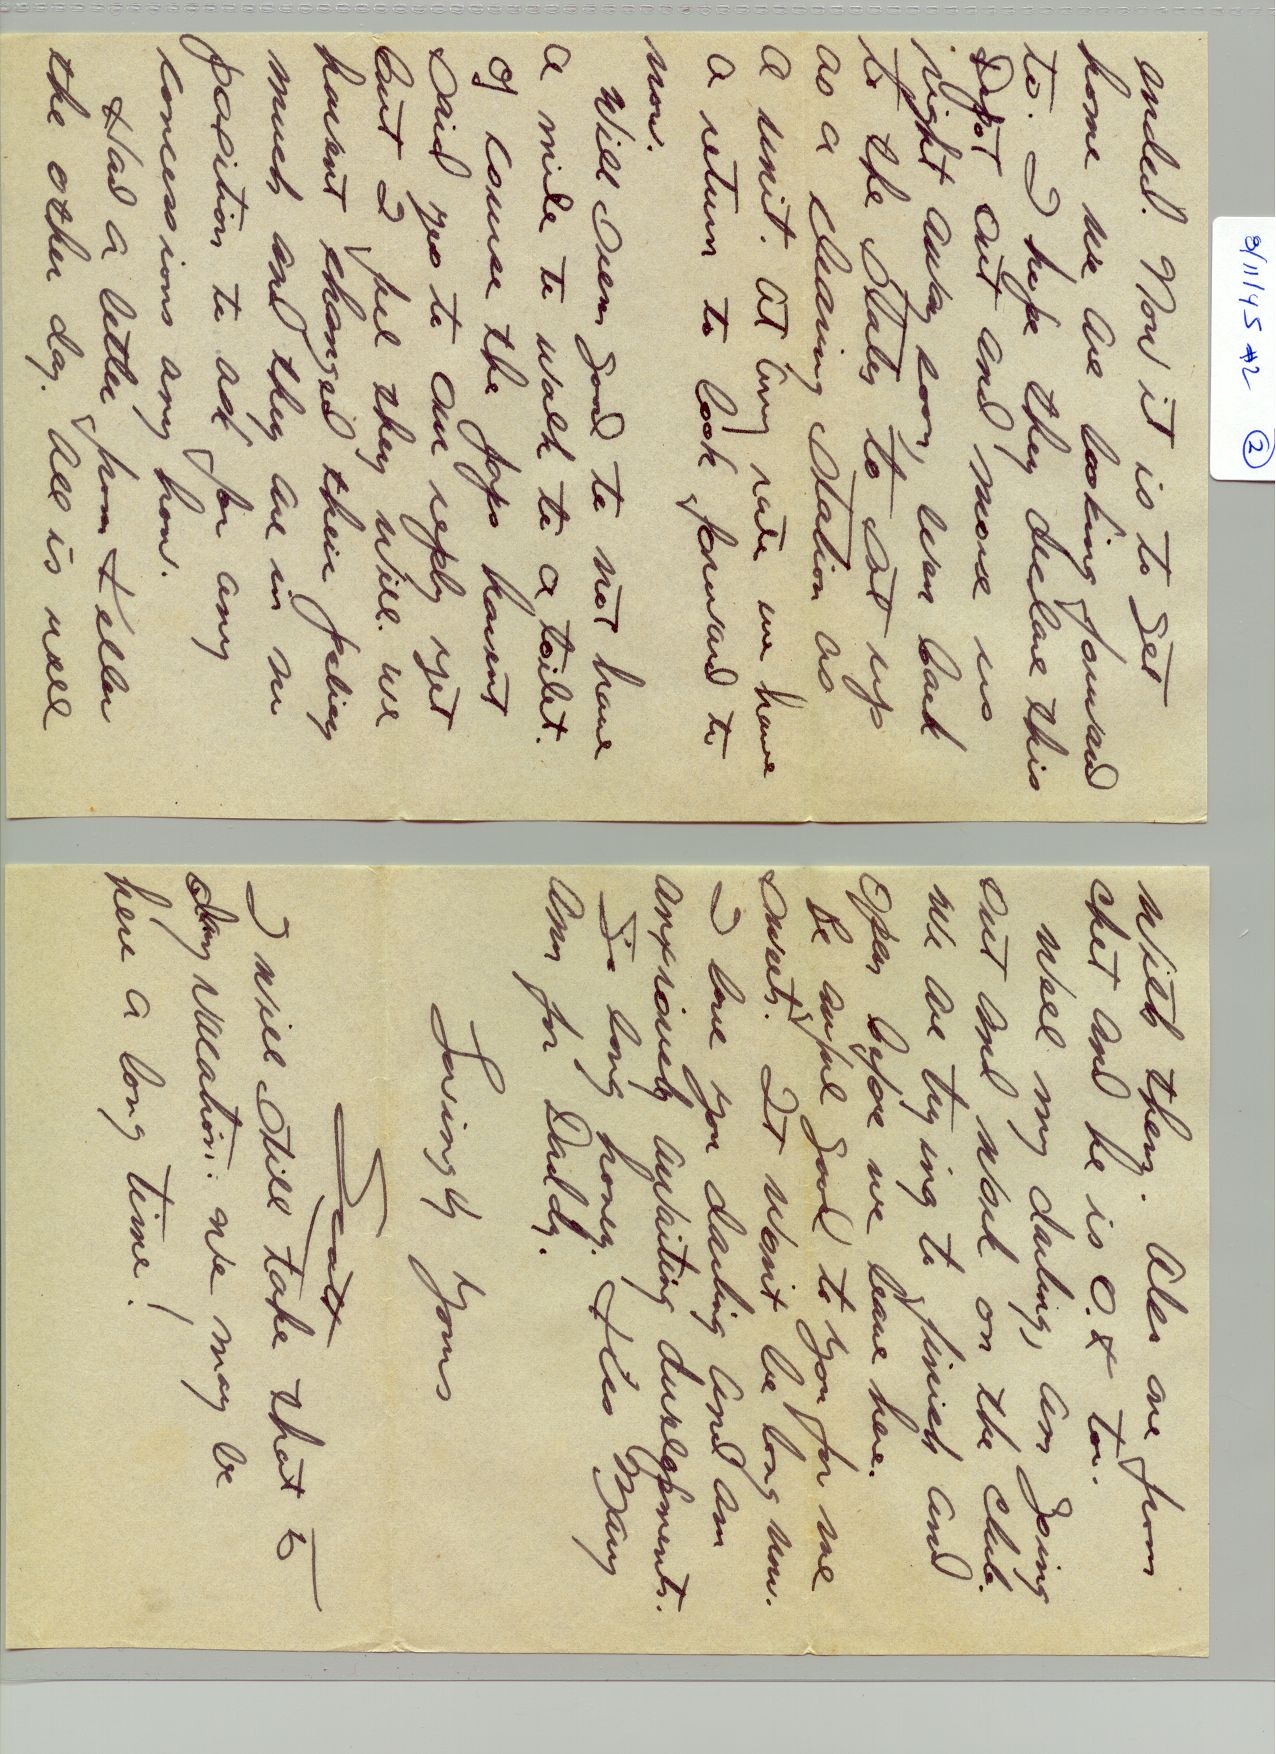 8/11/45 #2 ②
ended. Now it is to get
home we are looking forward
to. I hope they declare this
Dept out and move us
right away soon, even back
to the States to set up
as a clearing station as
a unit. At any rate we have
a return to look forward to
now.
Will seem good to not have
a mile to walk to a toilet.
Of course the Japs havent
said yes to our reply yet
but I feel they will. We
havent changed their feeling
much and they are in no
position to ask for any
concessions any how.
Had a letter from Keller
the other day. All is well
with them. Also one from
Chet and he is O.K too.
Well my darling, am going
out and work on the club.
We are trying to finish and
open before we leave here.
Be awful good to you for me
sweets. It wont be long now.
I love you darling and am
anxiously awaiting developments.
So long honey. Kiss Mary
Ann for Daddy.
Lovingly Yours
Scott
I will still take that 5
day vacation. We may be
here a long time!